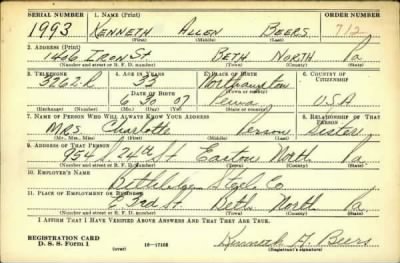 SERIAL NUMBER 1. NAME (Print) ORDER NUMBER
1993 KENNETH ALLEN BEERS 712
(First) (Middle) (Last)
2. ADDRESS (Print)
1406 IRON St BETH NORTH Pa
(Number and street or R. F. D. number) (Town) (County) (State)
3. TELEPHONE 4. AGE IN YEARS 5. PLACE OF BIRTH 6. COUNTRY OF CITIZENSHIP
3262-R 33 Northampton
DATE OF BIRTH (Town or county)
6 30 07 Penna U.S.A
(Exchange) (Number) (Mo.) (Day) (Yr.) (State or country)
7. NAME OF PERSON WHO WILL ALWAYS KNOW YOUR ADDRESS 8. RELATIONSHIP OF THAT PERSON
Mrs. Charlotte Sister
(Mr., Mrs., Miss) (First) (Middle) (Last)
9. ADDRESS OF THAT PERSON
954 24th St Easton North Pa.
(Number and street or R. F. D. number) (Town) (County) (State)
10. EMPLOYER'S NAME
Bethlehem Steel Co
11. PLACE OF EMPLOYMENT OR BUSINESS
E. 3rd St Beth North Pa
(Number and street or R. F. D. number) (Town) (County) (State)
I AFFIRM THAT I HAVE VERIFIED ABOVE ANSWERS AND THAT THEY ARE TRUE.
REGISTRATION CARD
D. S. S. Form 1 (over) 16—17105 Kenneth A Beers
(Registrant's signature)